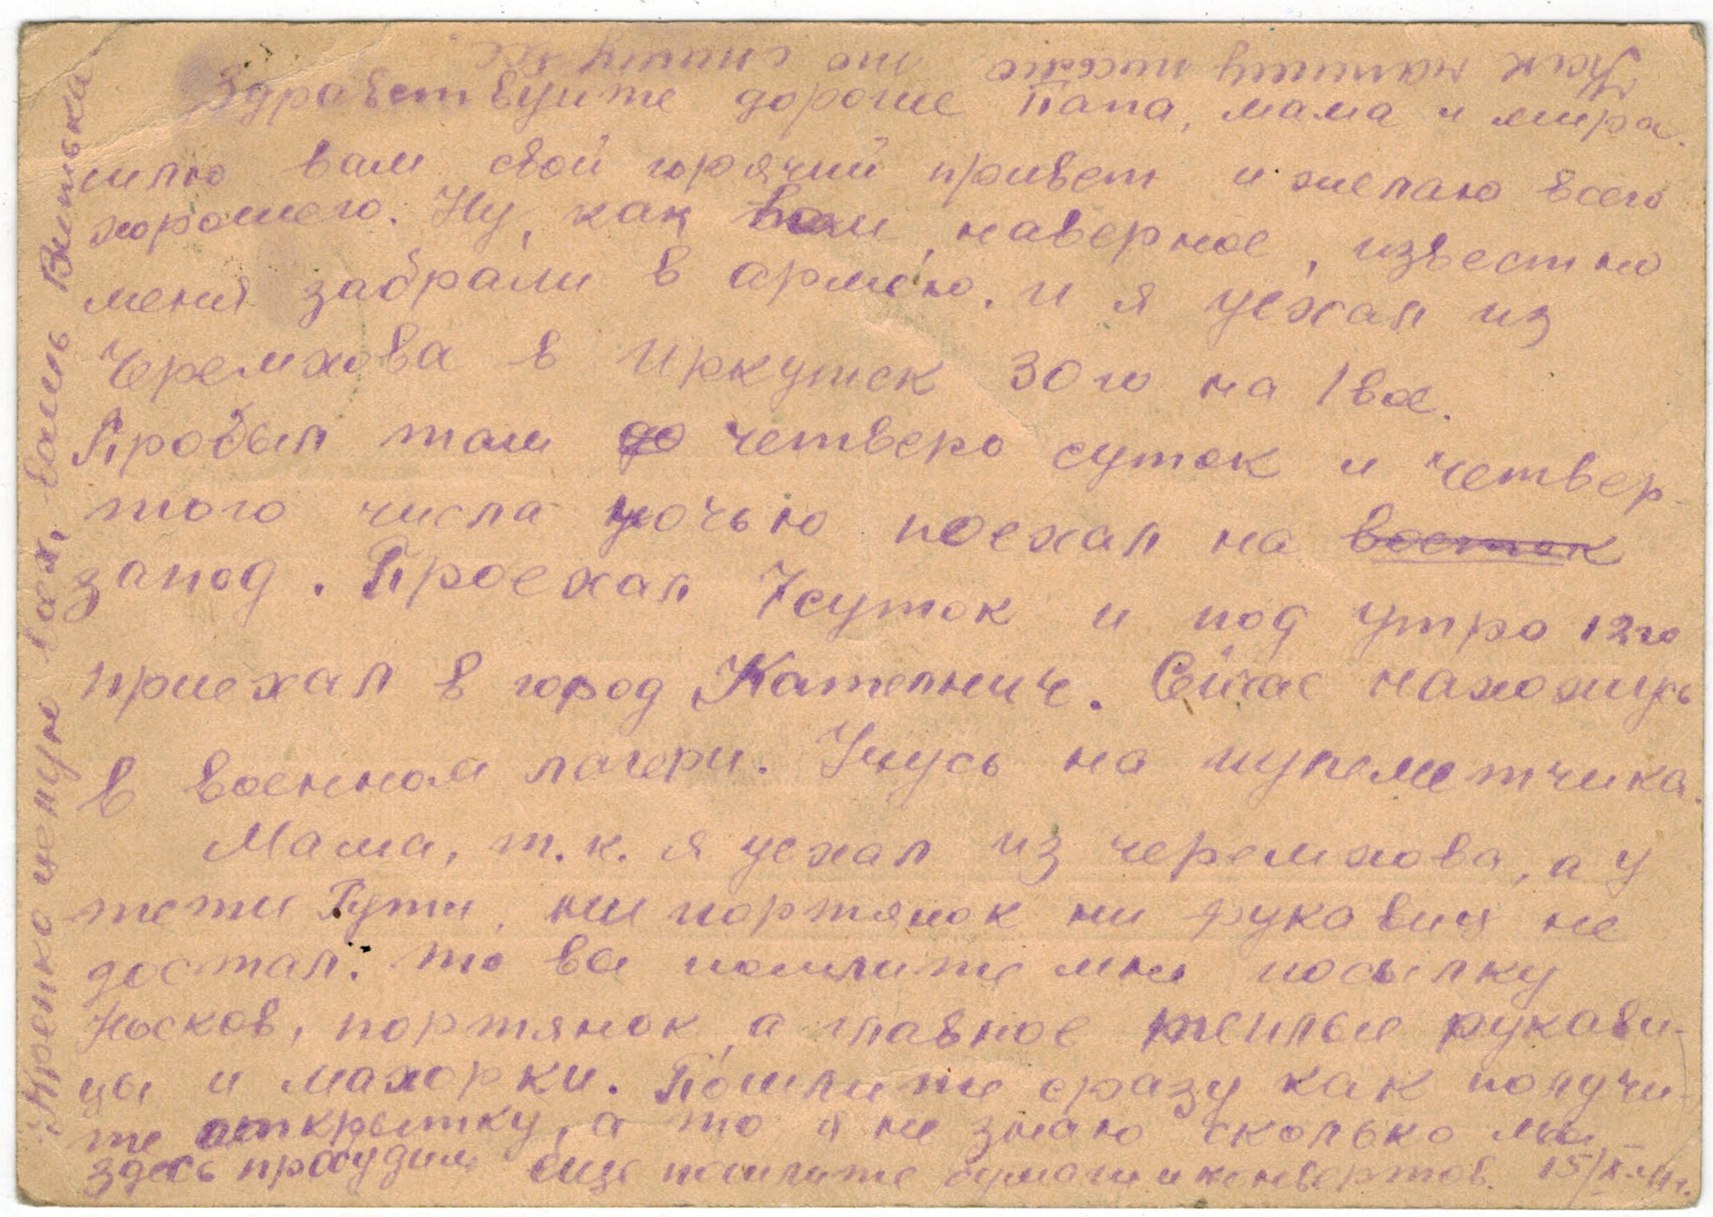 Здравствуйте дорогие Папа, мама и мира.
шлю вам свой горячий привет и желаю всего
хорошего. Ну, как вам, наверное, известно
меня забрали в армею. и я уехал из
Черемхова в Иркутск 30го на 1вое.
Пробыл там до четверо суток и четвер-
того числа ночью поехал на восток
запод. Проехал 7суток и под утро 12го
приехал в город Кательнич. Сичас нахожусь
в военном лагери. Учусь на пулеметчика.
Мама, т.к. я уехал из черемхова, а у
тети Гути, ни портянок ни рукавиц не
достал. то вы пошлите мне посылку
Носков, портянок, а главное теплые рукави-
цы и махорки. Пошлите сразу как получи-
те открытку, а то я не знаю сколько мы
здесь пробудим еще пошлите бумаги и конвертов. 15/
Крепко целую Вас, ваш Витька.
Как напишу письмо